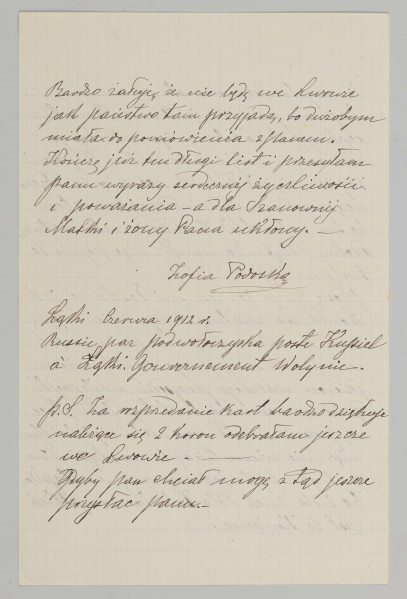 Bardzo żałuję że nie będę we Lwowie
jak państwo tam przyjadą, bo dużobym
miała do pomówienia z Panem.
Kończę już ten długi list i przesyłam
Panu wyrazy serdecznej życzliwości
i poważania – a dla Szanownej
Matki i żony Pana ukłony. —
Zofia Podoska
Czerwca 1912 r.
Russie par Podwołoczyska poste
à Gouvernement Wolynie.
P.S. Za wyprzedanie kart bardzo dziękuję
należące się 2 koron odebrałam jeszcze
we Lwowie. —
Gdyby pan chciał mogę stąd jeszcze
przysłać panu. —